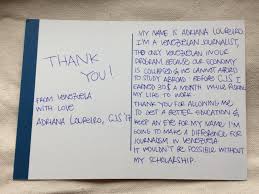 THANK
YOU!
FROM VENEZUELA
WITH LOVE
ADRIANA LOUREIRO, CJS '17
MY NAME IS ADRIANA LOUREIRO
I'M A VENEZUELAN JOURNALIST,
THE ONLY VENEZUELAN IN OUR
PROGRAM. BECAUSE OUR ECONOMY
IS COLLAPSED & WE CANNOT AFFORD
TO STUDY ABROAD. BEFORE CJS I
EARNED 30$ A MONTH WHILE RISKING
MY LIFE TO WORK.
THANK YOU FOR ALLOWING ME
TO GET A BETTER EDUCATION &
KEEP AN EYE FOR MY NAME: I'M
GOING TO MAKE A DIFFERENCE FOR
JOURNALISM IN VENEZUELA
IT WOULDN'T BE POSSIBLE WITHOUT
MY SCHOLARSHIP.